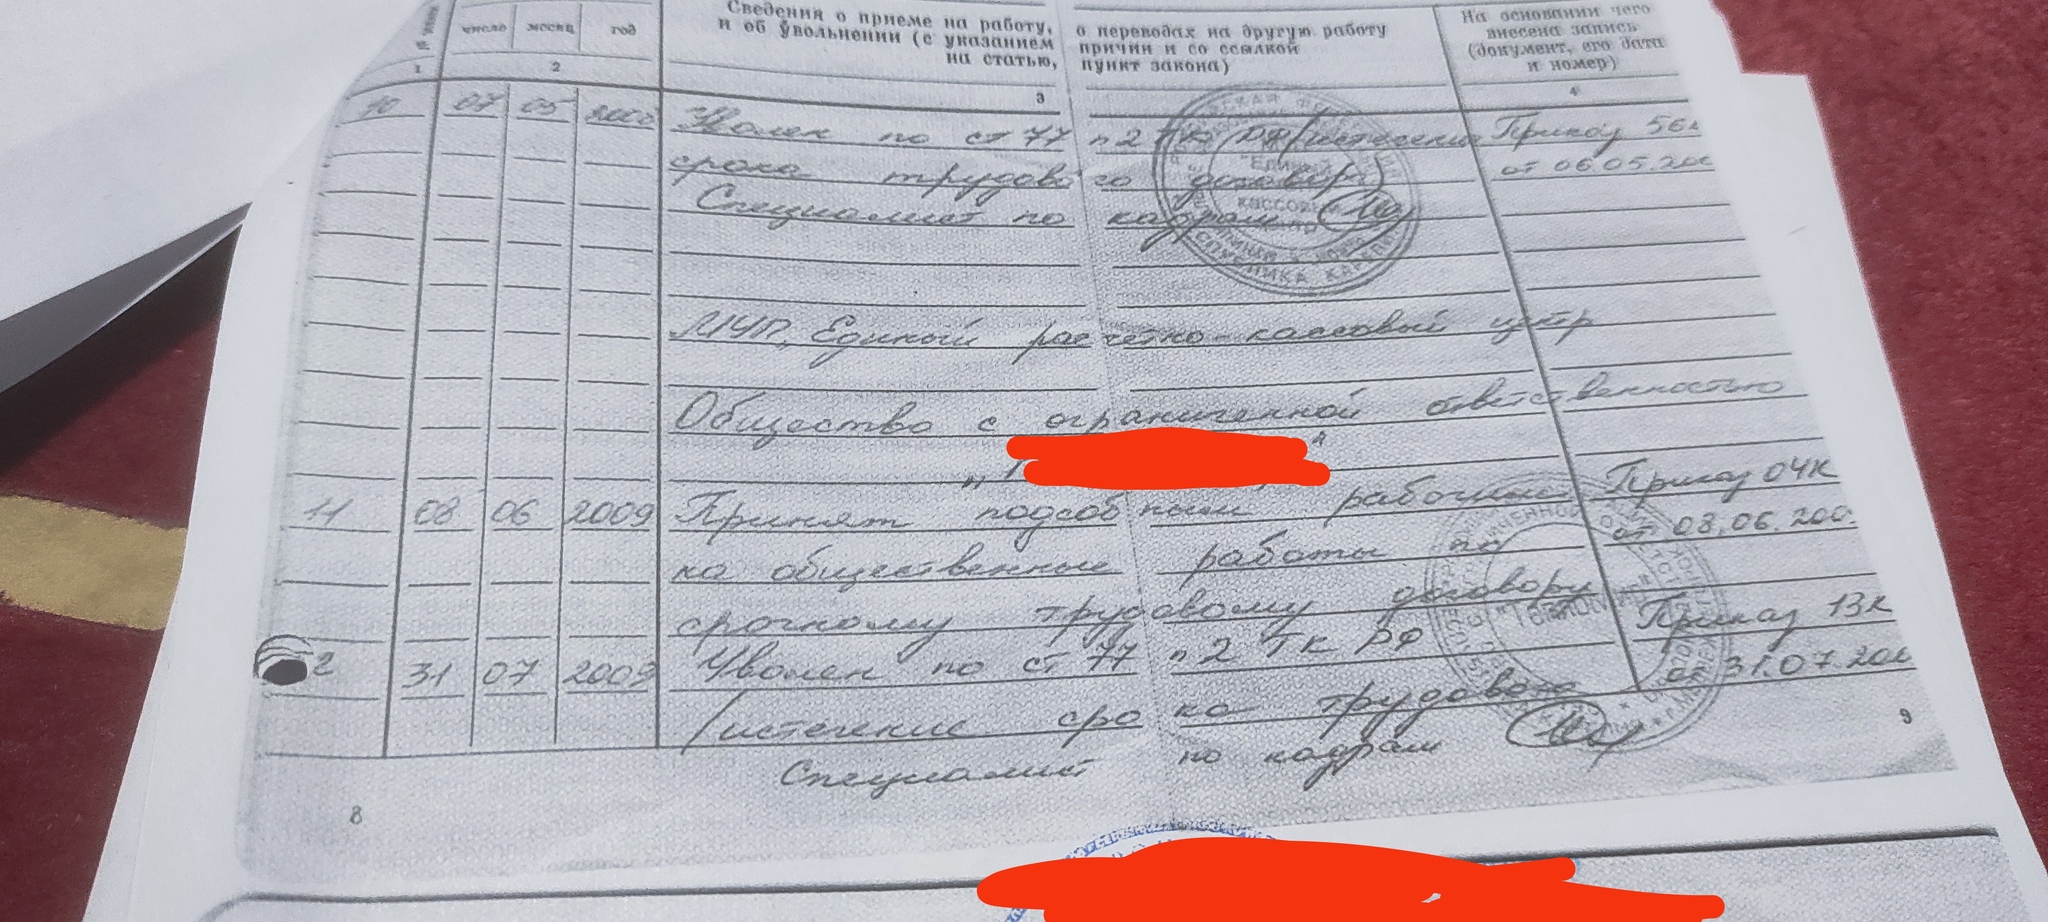 число месяц год
Сведения о приеме на работу, о переводах на другую работу
и об увольнении (с указанием причин и со ссылкой
на статью, пункт закона)
На основании чего
внесена запись
(документ, его дата
и номер)
1 2 3 4
10 07 05 Уволен по ст 77 п 2 ТК РФ /истечение Приказ
срока трудового договора/ от 06.05.200
Специалист по кадрам
МУП „Единый расчетно-кассовый центр
Общество с ограниченной ответственностью
11 08 06 2009 Принят подсобным рабочим Приказ 04к
на общественные работы по от 08.06.200
срочному трудовому договору
2 31 07 2009 Уволен по ст 77 п 2 ТК РФ Приказ 13к
/истечение срока трудового от 31.07.200
Специалист по кадрам
8 9